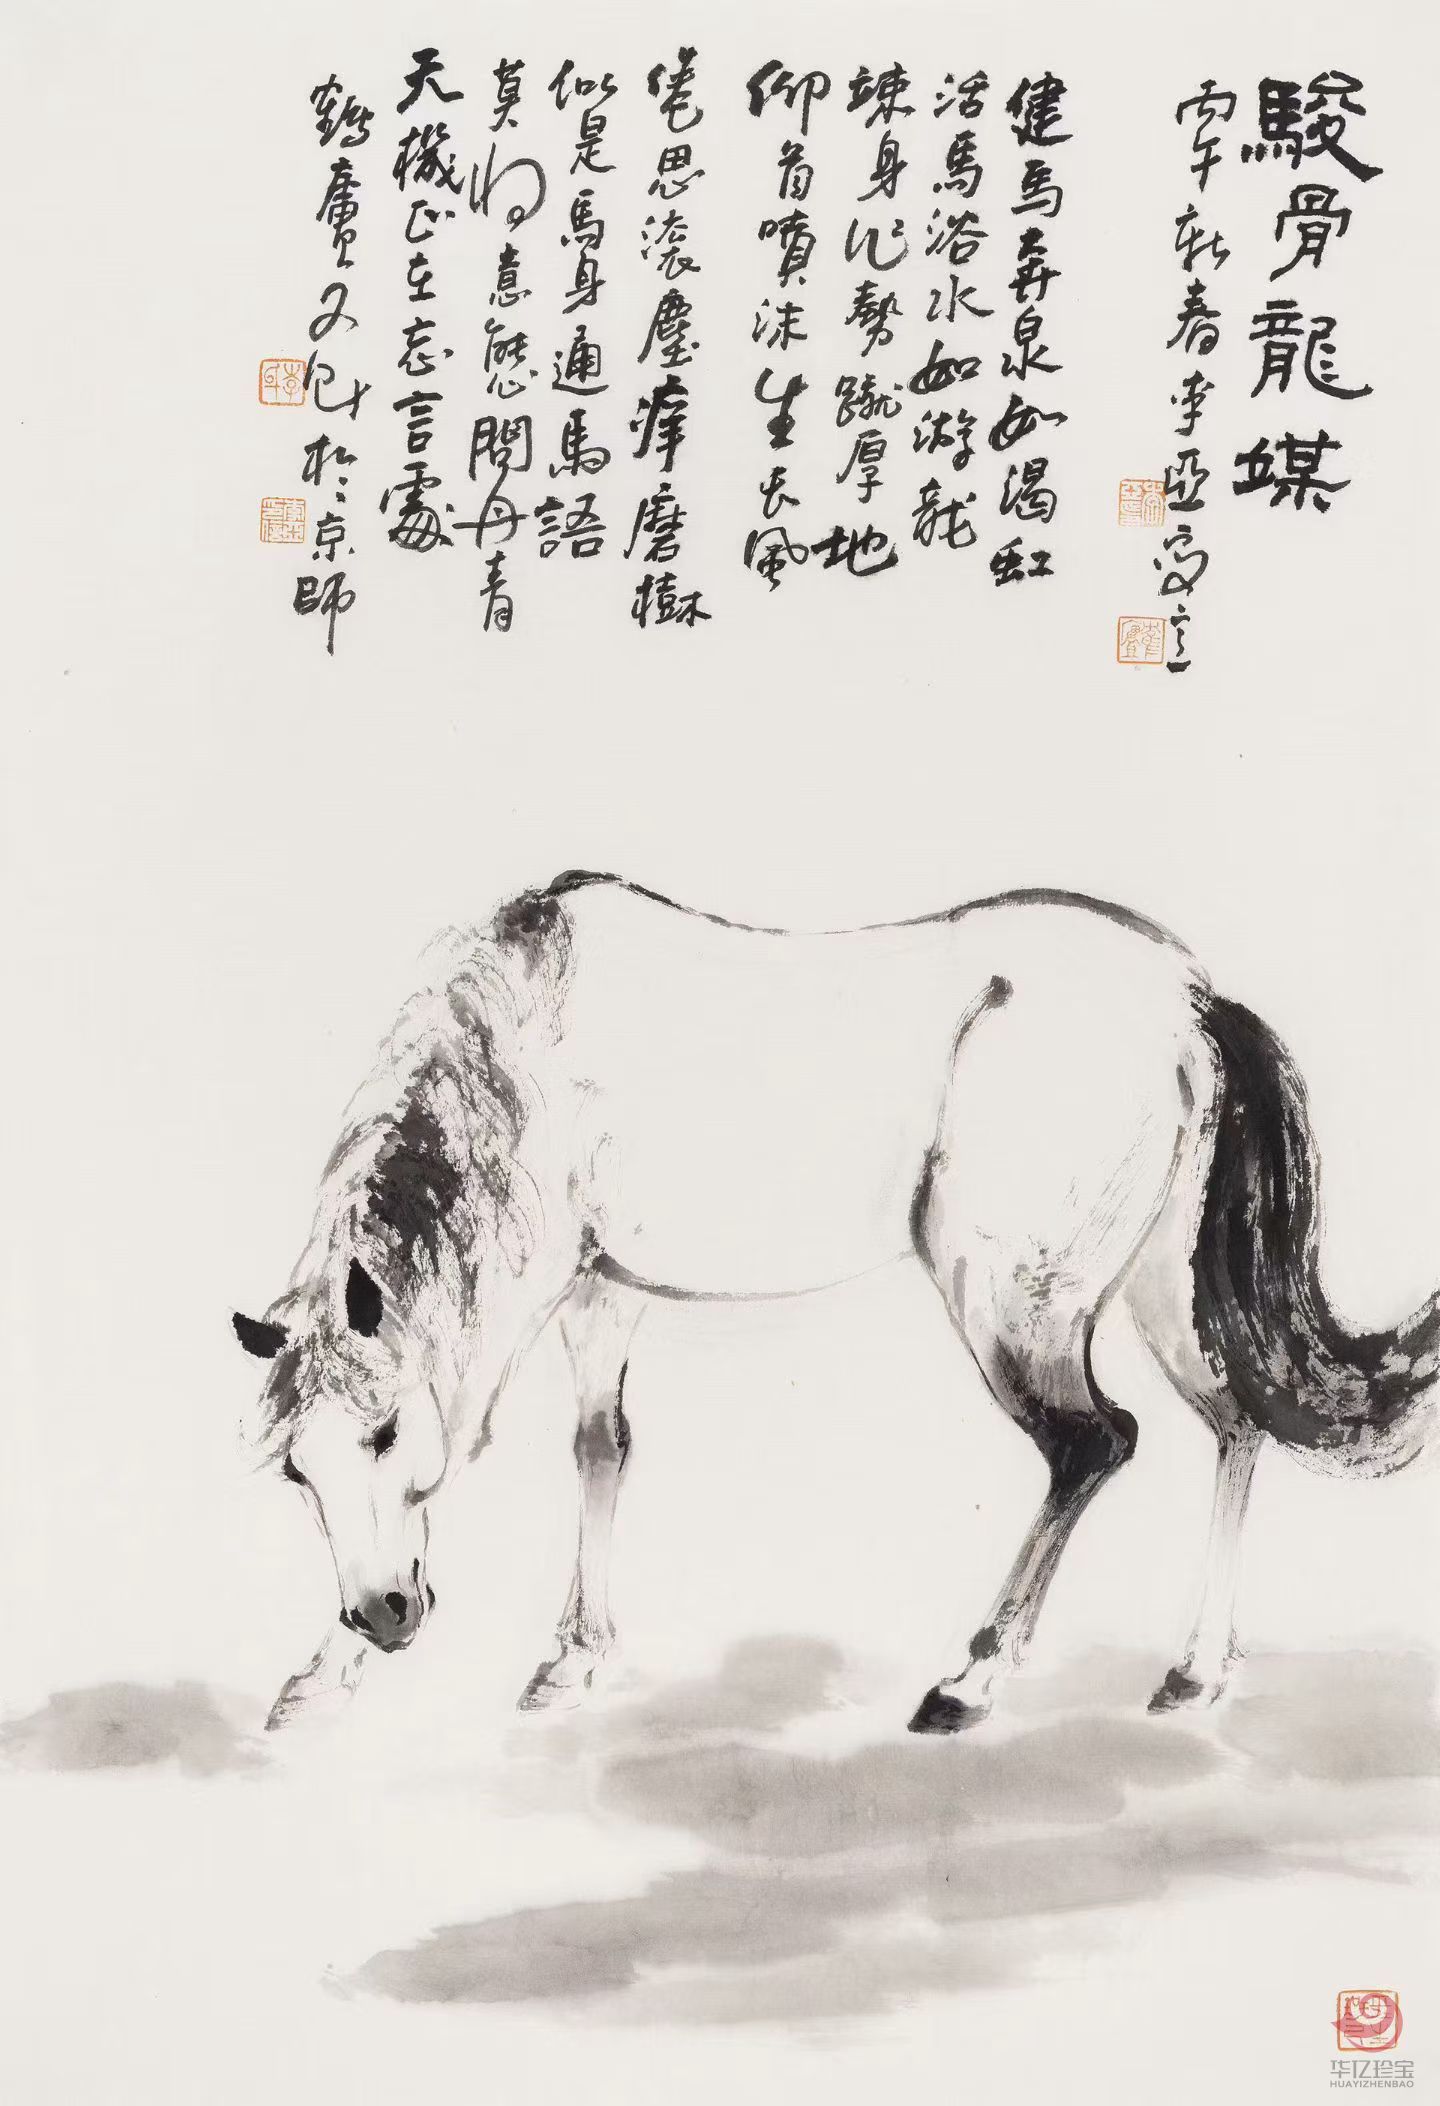 駿骨龍媒
丙午新春李亞寫意
健馬奔泉如渴虹
活馬浴水如游龍
竦身作勢蹴厚地
仰首噴沫生長風
倦思滚塵痒磨樹
似是馬身通馬語
莫將意態問丹青
天機正在忘言處
鶴廬又記於京師
华亿珍宝
HUAYIZHENBAO